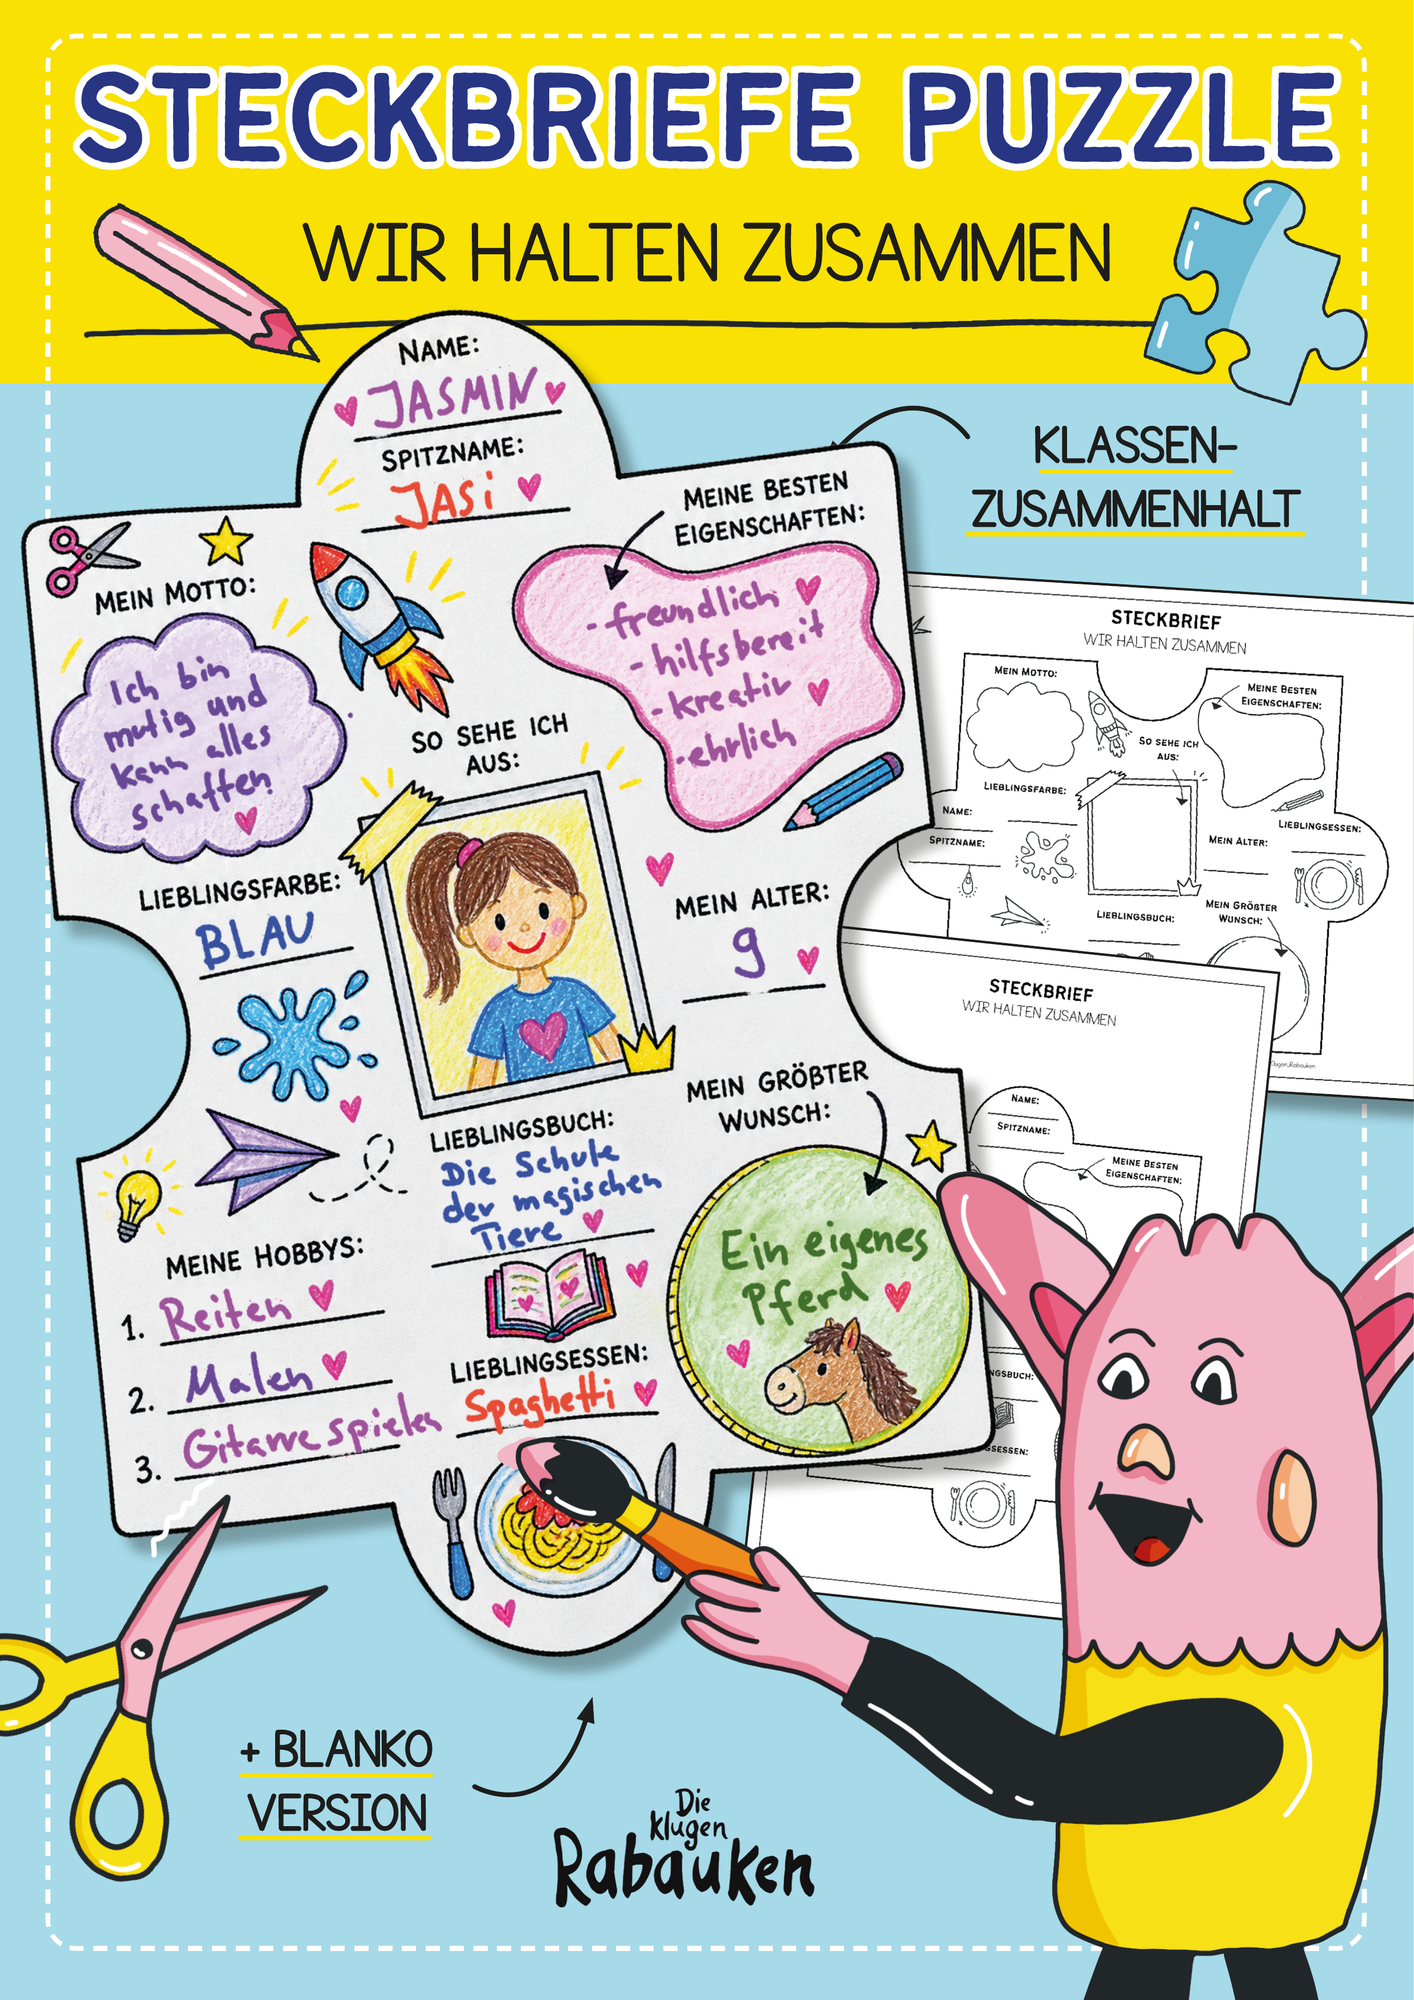 STECKBRIEFE PUZZLE
WIR HALTEN ZUSAMMEN
KLASSEN-
ZUSAMMENHALT
NAME:
JASMIN
SPITZNAME:
JASi
MEIN MOTTO:
Ich bin
mutig und
kann alles
schaffen
MEINE BESTEN
EIGENSCHAFTEN:
-freundlich
-hilfsbereit
-kreativ
-ehrlich
SO SEHE ICH
AUS:
LIEBLINGSFARBE:
BLAU
MEIN ALTER:
9
LIEBLINGSBUCH:
Die Schule
der magischen
Tiere
MEIN GRÖßTER
WUNSCH:
Ein eigenes
Pferd
MEINE HOBBYS:
1. Reiten
2. Malen
3. Gitarre spielen
LIEBLINGSESSEN:
Spaghetti
STECKBRIEF
WIR HALTEN ZUSAMMEN
MEIN MOTTO:
MEINE BESTEN
EIGENSCHAFTEN:
SO SEHE ICH
AUS:
LIEBLINGSFARBE:
NAME:
SPITZNAME:
MEIN ALTER:
LIEBLINGSESSEN:
LIEBLINGSBUCH:
MEIN GRÖßTER
WUNSCH:
STECKBRIEF
WIR HALTEN ZUSAMMEN
NAME:
SPITZNAME:
MEINE BESTEN
EIGENSCHAFTEN:
NGSBUCH:
GSESSEN:
+ BLANKO
VERSION
Die
klugen
Rabauken